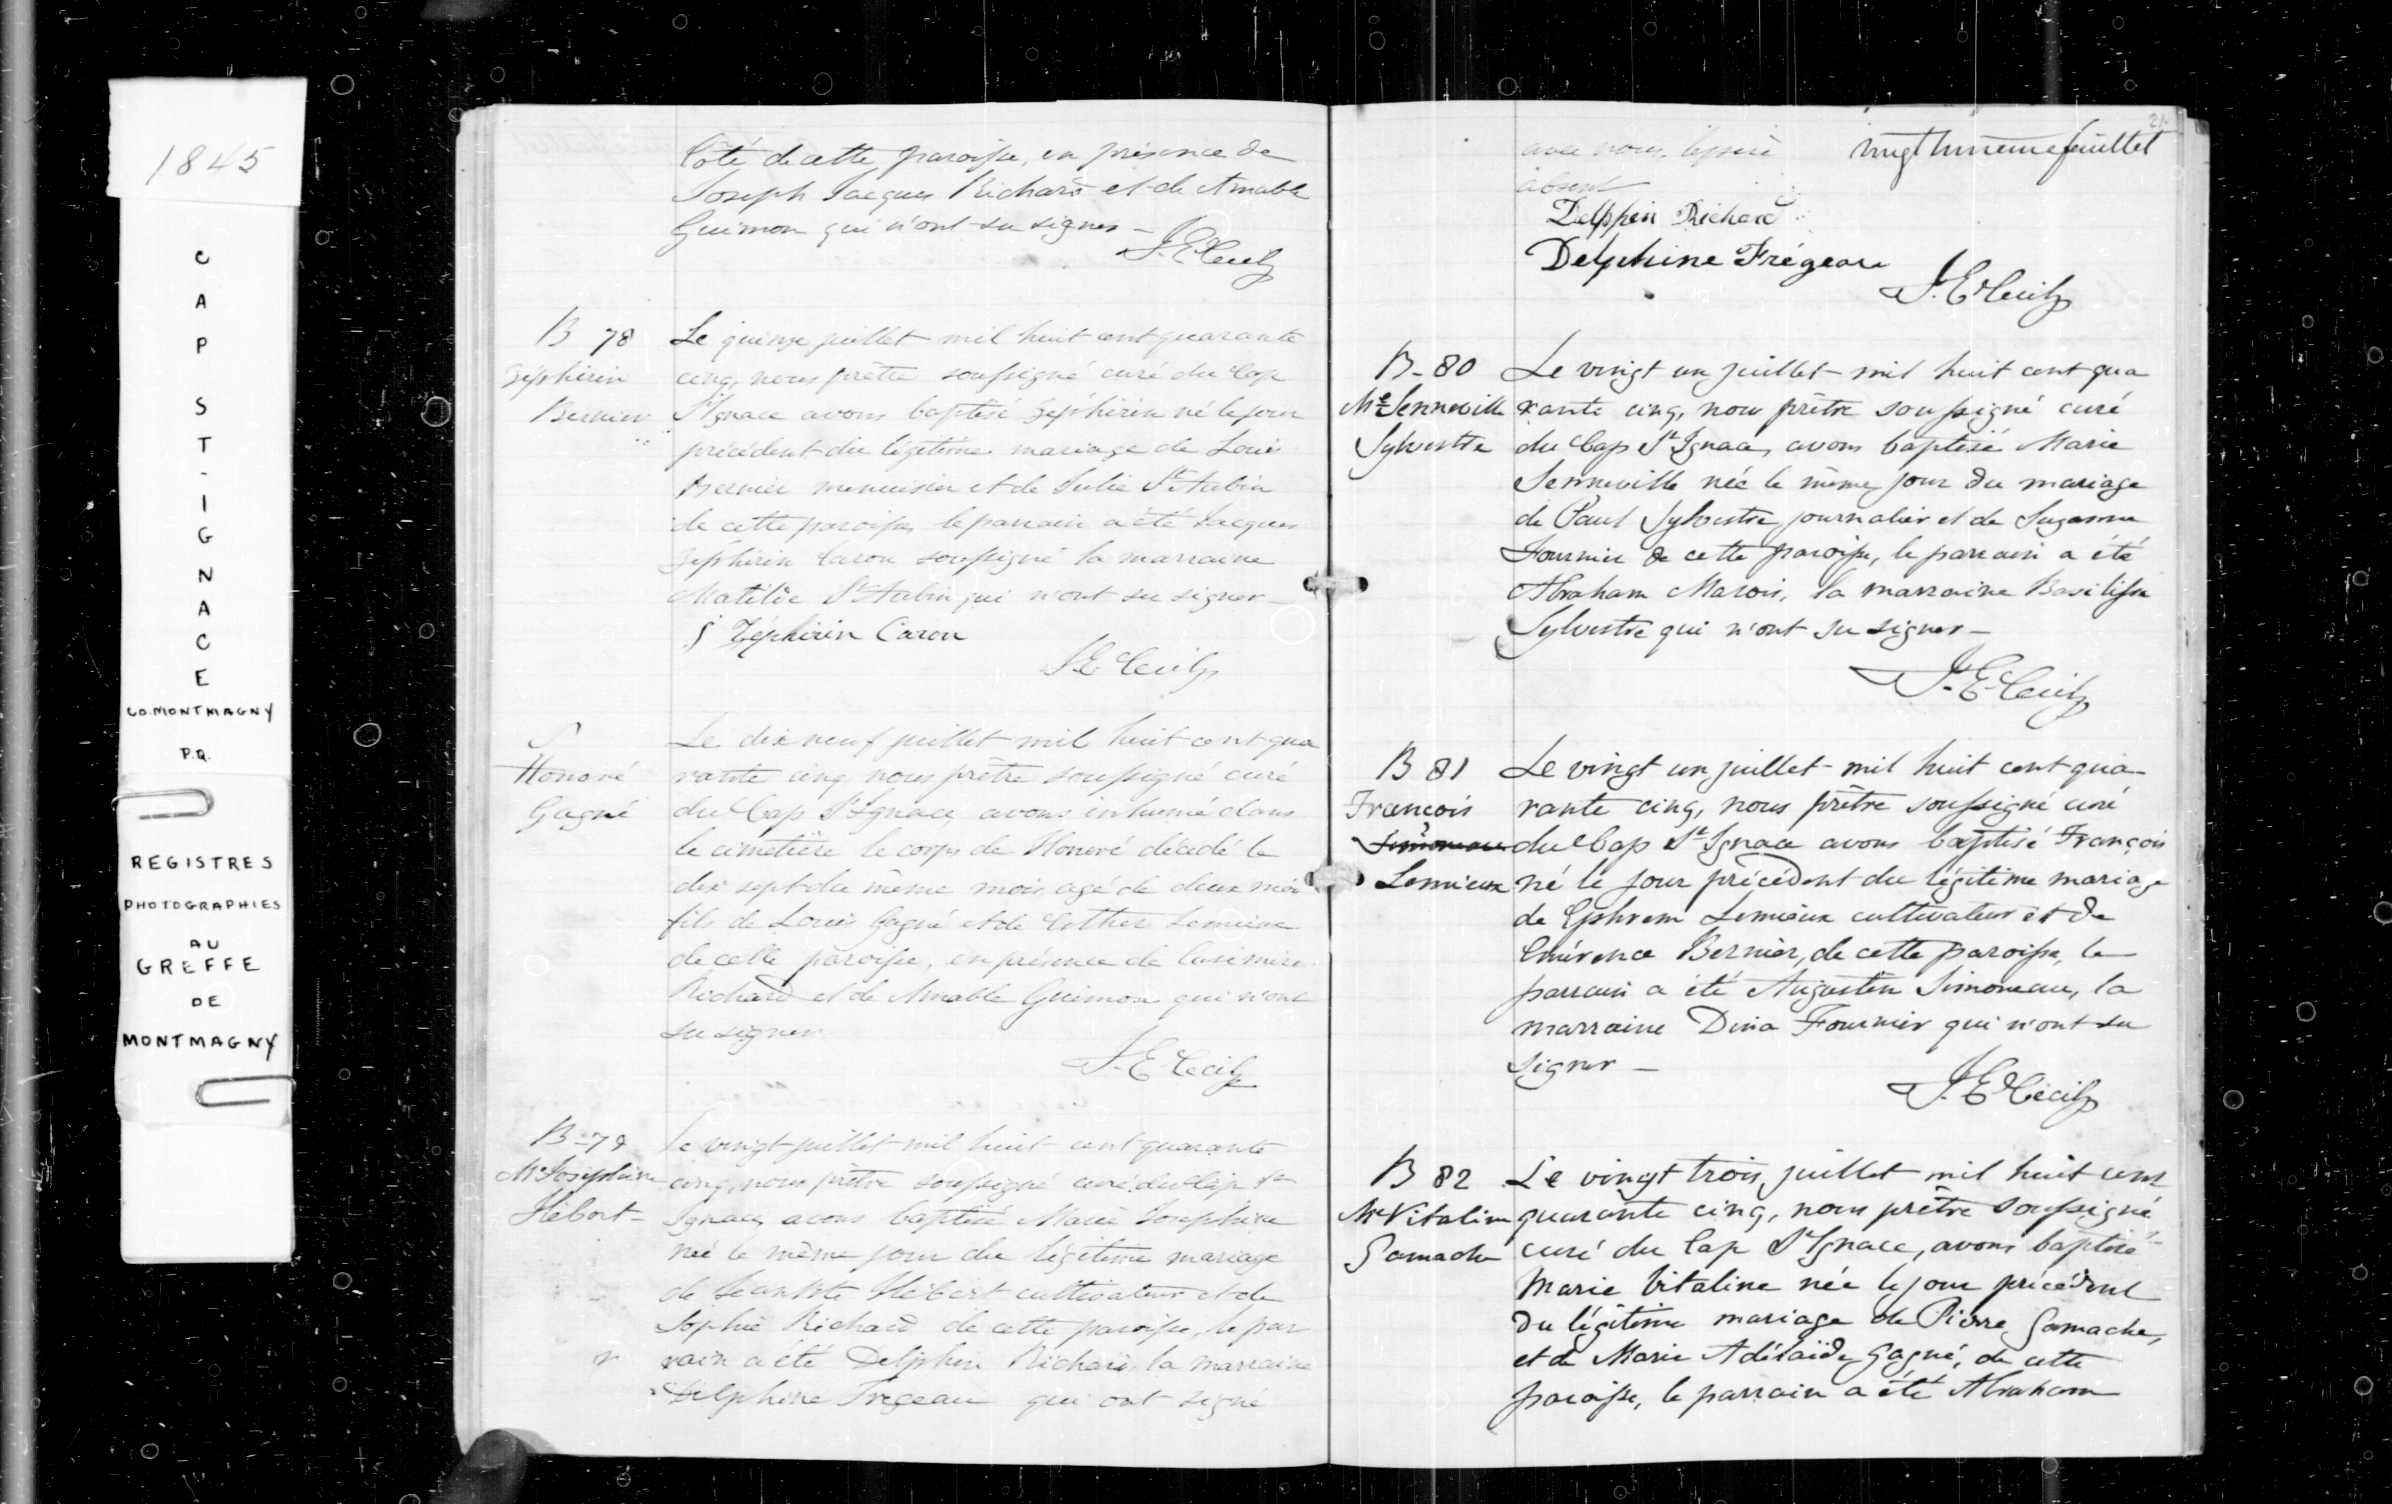 1845
CAP ST-IGNACE
CO. MONTMAGNY
P.Q.
REGISTRES
PHOTOGRAPHIES
AU
GREFFE
DE
MONTMAGNY
Côté de cette paroisse, en présence de
Joseph Jacques Richard et de Amable
Guimon qui n'ont su signer –
J. E. Cecil
B 78
Zéphirin
Bernier
Le quinze juillet mil huit cent quarante
cinq, nous prêtre soussigné curé du Cap
St Ignace avons baptisé Zéphirin né le jour
précédent du légitime mariage de Louis
Bernier menuisier et de Julie St Aubin
de cette paroisse, le parrain a été Jacques
Zéphirin Caron soussigné la marraine
Matilde St Aubin qui n'ont su signer –
J Zéphirin Caron
J. E. Cecil
S
Honoré
Gagné
Le dix neuf juillet mil huit cent qua
rante cinq nous prêtre soussigné curé
du Cap St Ignace, avons inhumé dans
le cimetière le corps de Honoré décédé le
dix sept du même mois agé de deux mois
fils de Louis Gagné et de Esther Lemieux
de cette paroisse, en présence de Casimire
Richard et de Amable Guimon qui n'ont
su signer
J. E. Cecil
B-79
Me Josephine
Hébert
Le vingt juillet mil huit cent quarante
cinq, nous prêtre soussigné curé du Cap St
Ignace, avons baptisé Marie Josephine
née le même jour du légitime mariage
de Jean Bte Hébert cultivateur et de
Sophie Richard de cette paroisse, le par
rain a été Delphin Richard, la marraine
Delphine Fregeau qui ont signé
21
vingt unième feuillet
avec nous, le père
absent
Delphin Richard
Delphine Frégeau
J. E. Cecil
B-80
Me Senneville
Sylvestre
Le vingt un juillet mil huit cent qua
rante cinq, nous prêtre soussigné curé
du Cap St Ignace, avons baptisé Marie
Senneville née le même jour du mariage
de Paul Sylvestre journalier et de Suzanne
Fournier de cette paroisse, le parrain a été
Abraham Marois, la marraine Basilisse
Sylvestre qui n'ont su signer –
J. E. Cecil
B 81
François
Simoneau
Lemieux
Le vingt un juillet mil huit cent qua-
rante cinq, nous prêtre soussigné curé
du Cap St Ignace avons baptisé François
né le jour précédent du légitime mariage
de Ephrem Lemieux cultivateur et de
Emérence Bernier, de cette paroisse, le
parrain a été Augustin Simoneau, la
marraine Dina Fournier qui n'ont su
signer –
J. E. Cecil
B 82
Me Vitaline
Gamache
Le vingt trois juillet mil huit cent
quarante cinq, nous prêtre soussigné
curé du Cap St Ignace, avons baptisé
Marie Vitaline née le jour précédent
du légitime mariage de Pierre Gamache,
et de Marie Adélaïde Gagné, de cette
paroisse, le parrain a été Abraham